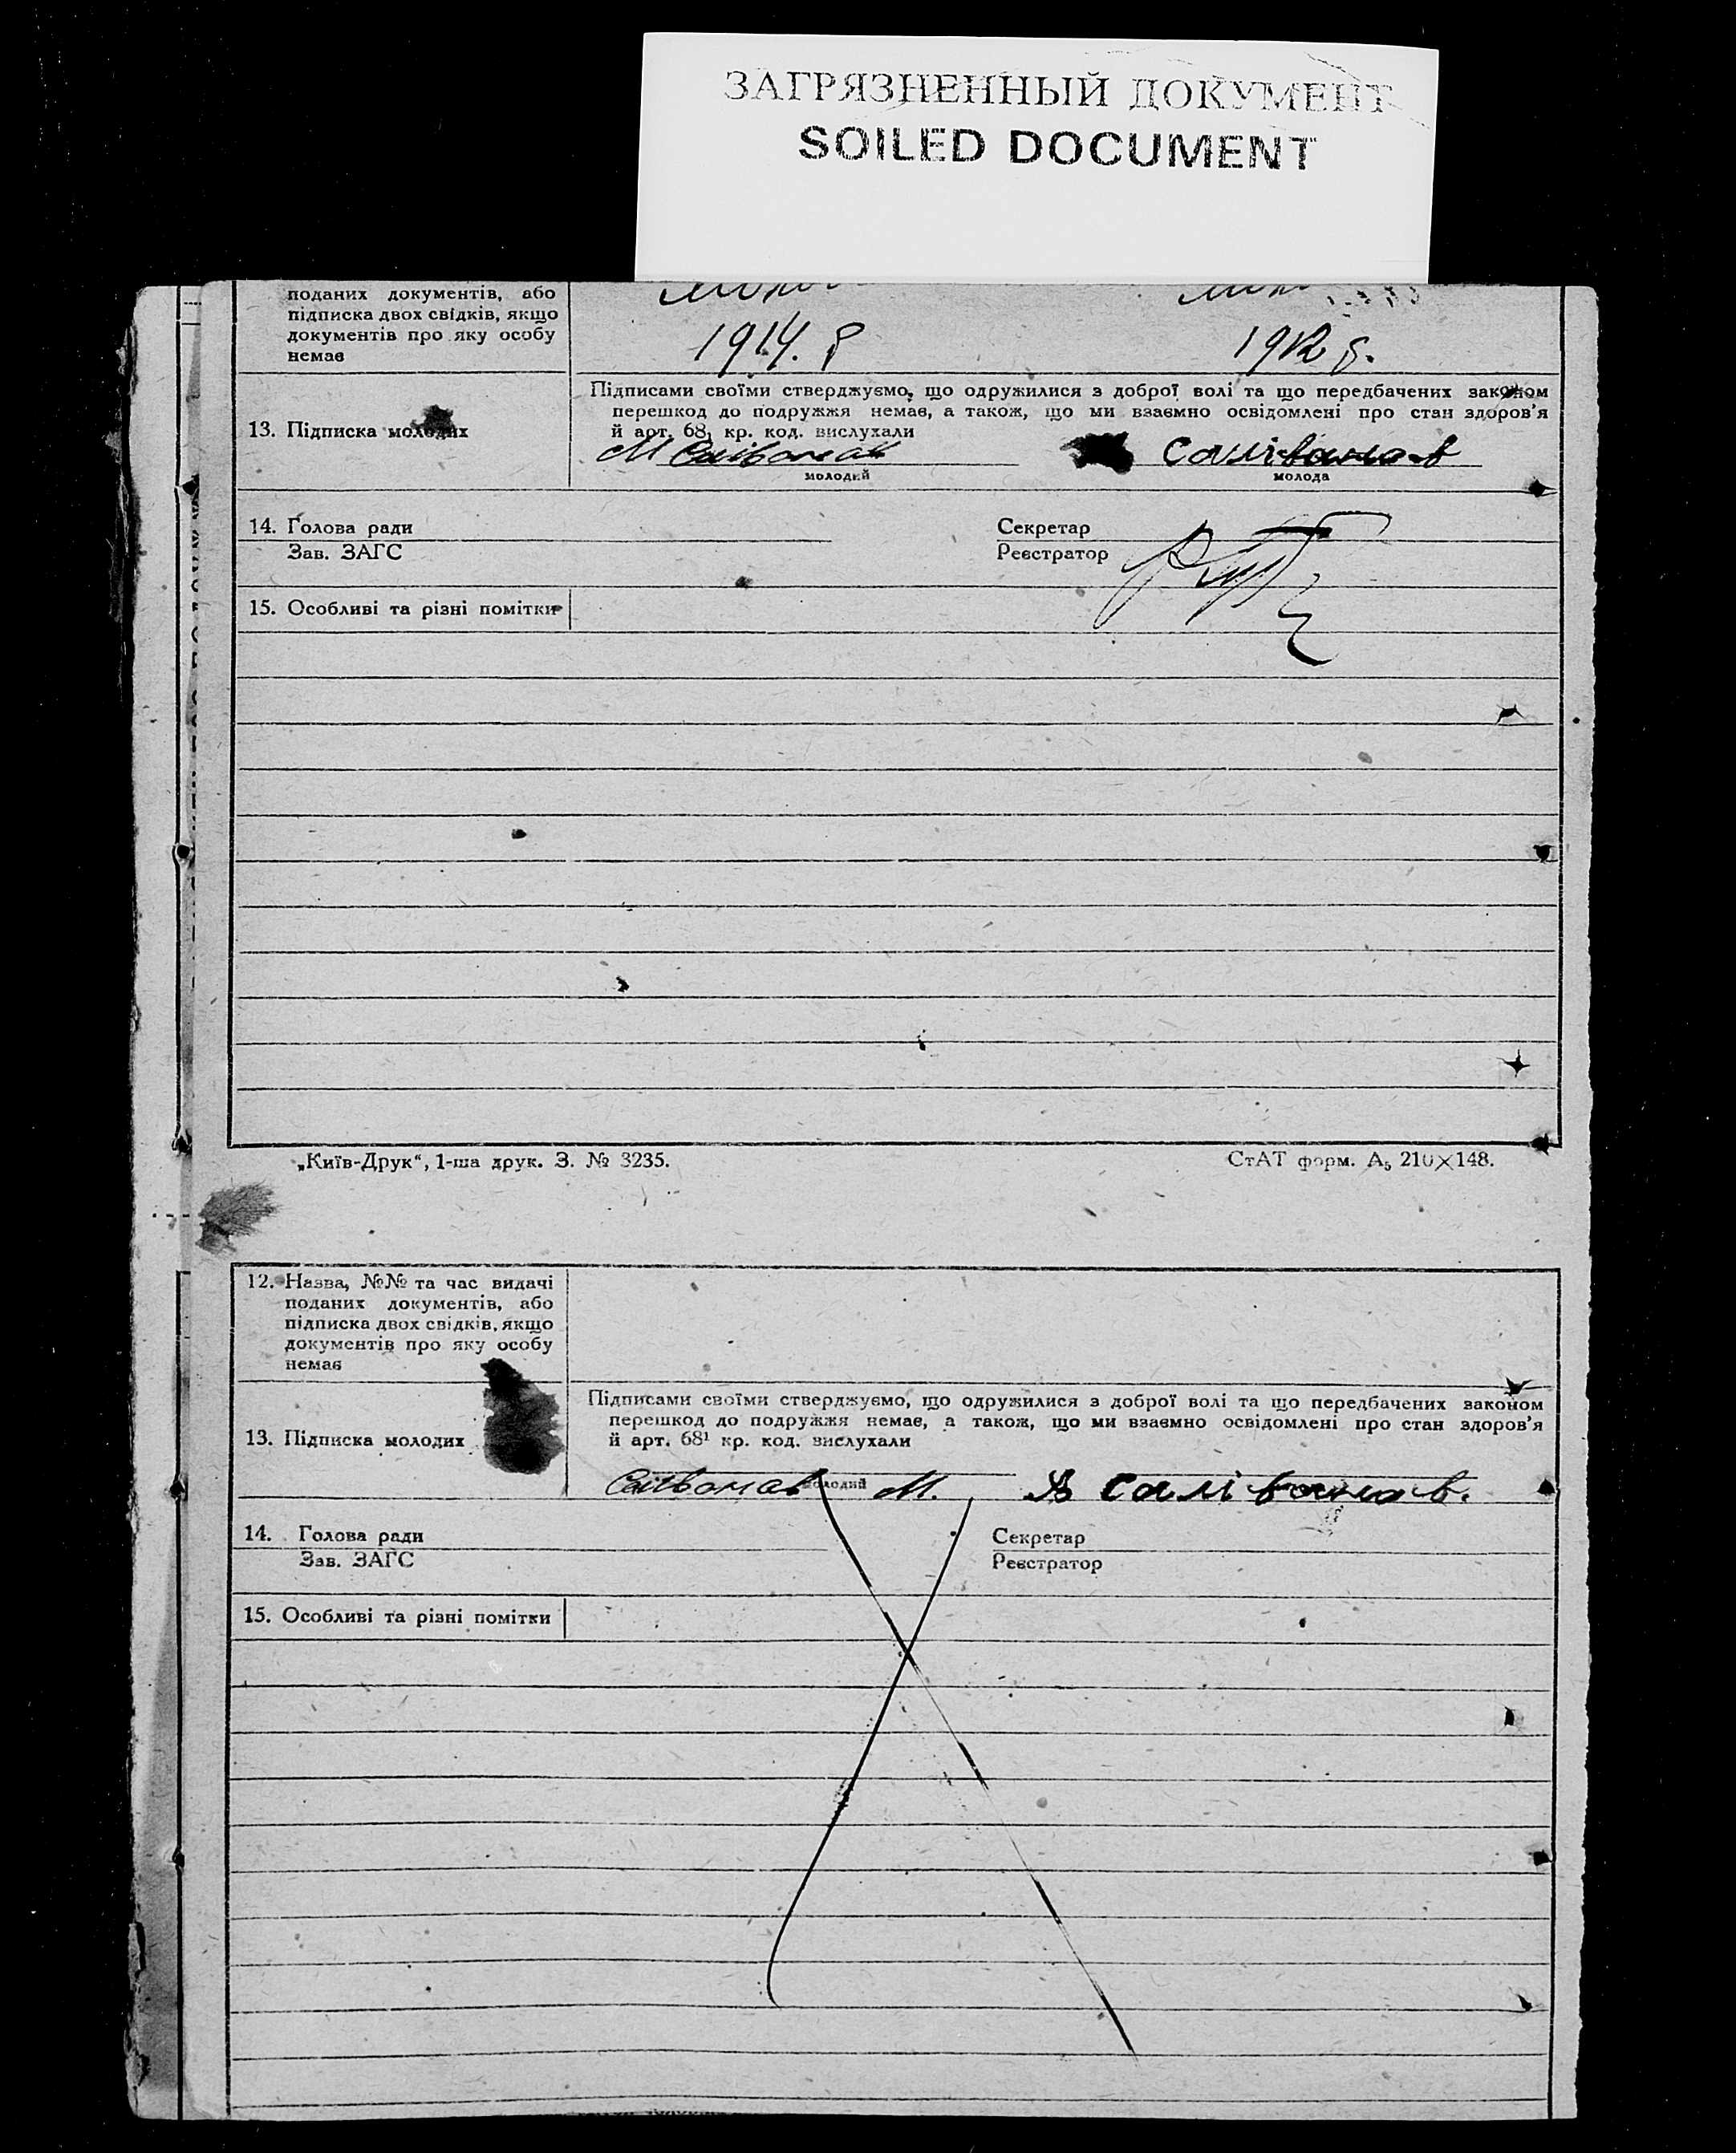 ЗАГРЯЗНЕННЫЙ ДОКУМЕНТ
SOILED DOCUMENT
поданих документів, або
підписка двох свідків, якщо
документів про яку особу
немає
1914. р
1912 р.
13. Підписка молодих
Підписами своїми стверджуємо, що одружилися з доброї волі та що передбачених законом
перешкод до подружжя немає, а також, що ми взаємно освідомлені про стан здоров'я
й арт. 68¹ кр. код. вислухали
М Салівонав
Салівонав
молодий
молода
14. Голова ради
Секретар
Зав. ЗАГС
Реєстратор
15. Особливі та різні помітки
„Київ-Друк“, 1-ша друк. З. № 3235.
СтАТ форм. А₅ 210×148.
12. Назва, №№ та час видачі
поданих документів, або
підписка двох свідків, якщо
документів про яку особу
немає
13. Підписка молодих
Підписами своїми стверджуємо, що одружилися з доброї волі та що передбачених законом
перешкод до подружжя немає, а також, що ми взаємно освідомлені про стан здоров'я
й арт. 68¹ кр. код. вислухали
молодий
М.
14. Голова ради
Секретар
Зав. ЗАГС
Реєстратор
15. Особливі та різні помітки